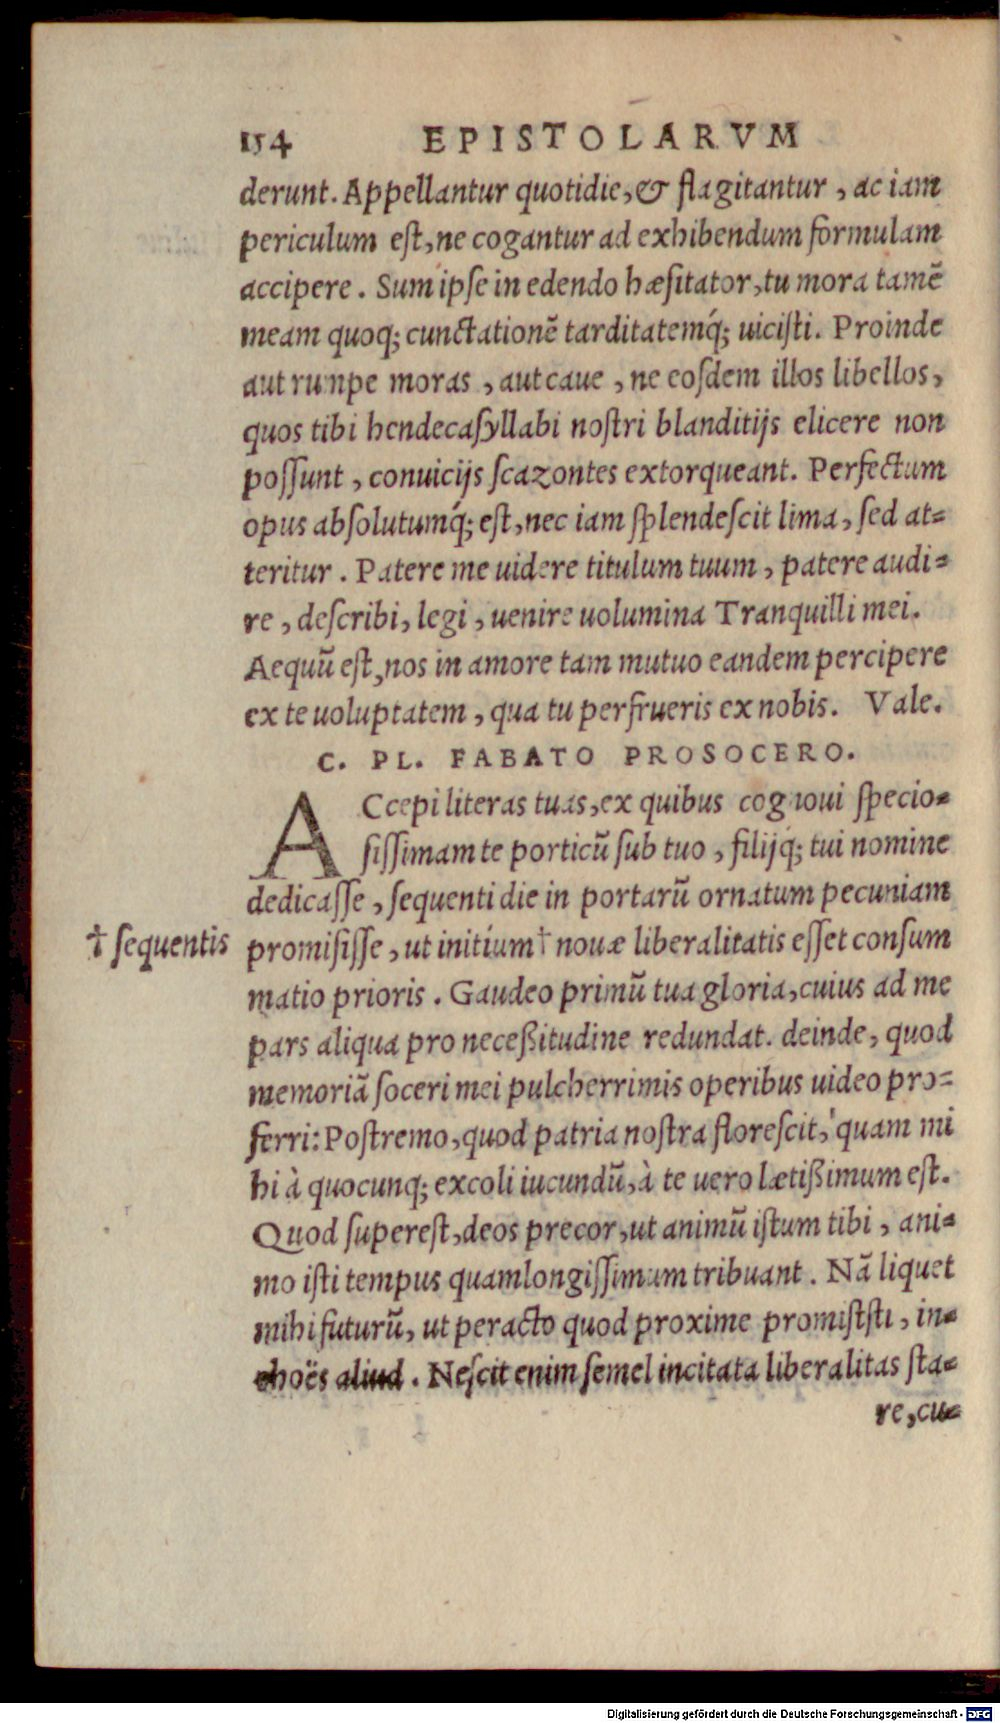 154 EPISTOLARVM
derunt. Appellantur quotidie, & flagitantur, ac iam
periculum est, ne cogantur ad exhibendum formulam
accipere. Sum ipse in edendo hæsitator, tu mora tamē
meam quoq; cunctationē tarditatemq́; uicisti. Proinde
aut rumpe moras, aut caue, ne eosdem illos libellos,
quos tibi hendecasyllabi nostri blanditijs elicere non
possunt, conuicijs scazontes extorqueant. Perfectum
opus absolutumq́; est, nec iam splendescit lima, sed at=
teritur. Patere me uidere titulum tuum, patere audi=
re, describi, legi, uenire uolumina Tranquilli mei.
Aequū est, nos in amore tam mutuo eandem percipere
ex te uoluptatem, qua tu perfrueris ex nobis. Vale.
C. PL. FABATO PROSOCERO.
ACcepi literas tuas, ex quibus cognoui specio=
sissimam te porticū sub tuo, filijq́; tui nomine
dedicasse, sequenti die in portarū ornatum pecuniam
† sequentis
promisisse, ut initium † nouæ liberalitatis esset consum
matio prioris. Gaudeo primū tua gloria, cuius ad me
pars aliqua pro neceßitudine redundat. deinde, quod
memoriā soceri mei pulcherrimis operibus uideo pro=
ferri: Postremo, quod patria nostra florescit, quam mi
hi à quocunq; excoli iucundū, à te uero lætißimum est.
Quod superest, deos precor, ut animū istum tibi, ani=
mo isti tempus quamlongissimum tribuant. Nā liquet
mihi futurū, ut peracto quod proxime promisisti, in=
choës aliud. Nescit enim semel incitata liberalitas sta=
re, cu=
Digitalisierung gefördert durch die Deutsche Forschungsgemeinschaft - DFG